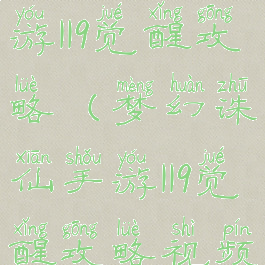 yóu jué xǐng gōng
游119觉醒攻
lüè mèng huàn zhū
略(梦幻诛
xiān shǒu yóu jué
仙手游119觉
xǐng gōng lüè shì pín
醒攻略视频